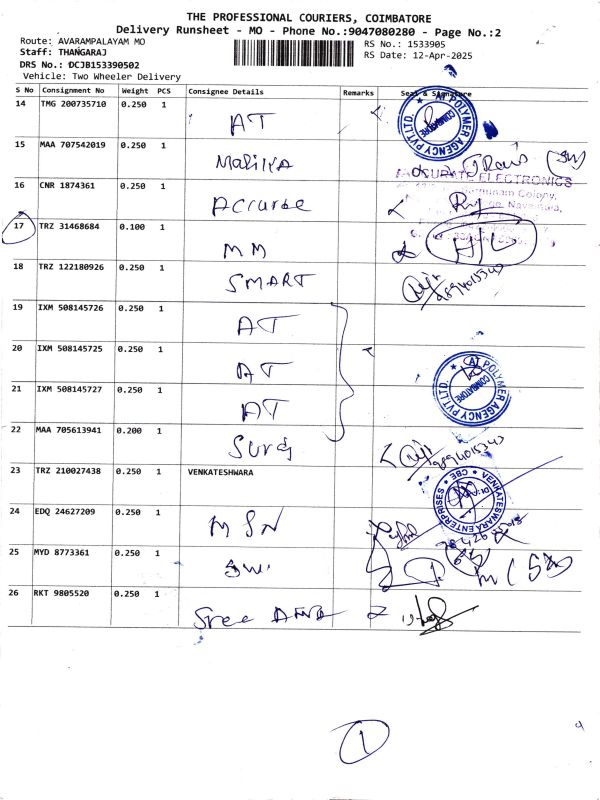 THE PROFESSIONAL COURIERS, COIMBATORE
Delivery Runsheet - MO - Phone No.:9047080280 - Page No.:2
Route: AVARAMPALAYAM MO
Staff: THANGARAJ
DRS No.: DCJB153390502
Vehicle: Two Wheeler Delivery
RS No.: 1533905
RS Date: 12-Apr-2025
S No Consignment No Weight PCS Consignee Details Remarks Seal & Signature
14 TMG 200735710 0.250 1 AT
AJ POLYMER AGENCY PVT.LTD. COIMBATORE
15 MAA 707542019 0.250 1
16 CNR 1874361 0.250 1
ACCURATE ELECTRONICS
17 TRZ 31468684 0.100 1 MM
18 TRZ 122180926 0.250 1 SMART
19 IXM 508145726 0.250 1 AT
20 IXM 508145725 0.250 1 AT
21 IXM 508145727 0.250 1 AT
AJ POLYMER AGENCY PVT.LTD. COIMBATORE
22 MAA 705613941 0.200 1
23 TRZ 210027438 0.250 1 VENKATESHWARA
VENKATESWARA ENTERPRISES CBE
24 EDQ 24627209 0.250 1 MSN
25 MYD 8773361 0.250 1
26 RKT 9805520 0.250 1 Sree
1